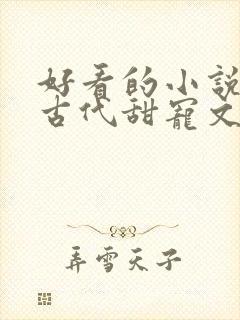 好看的小說
古代甜寵文
弄雪天子